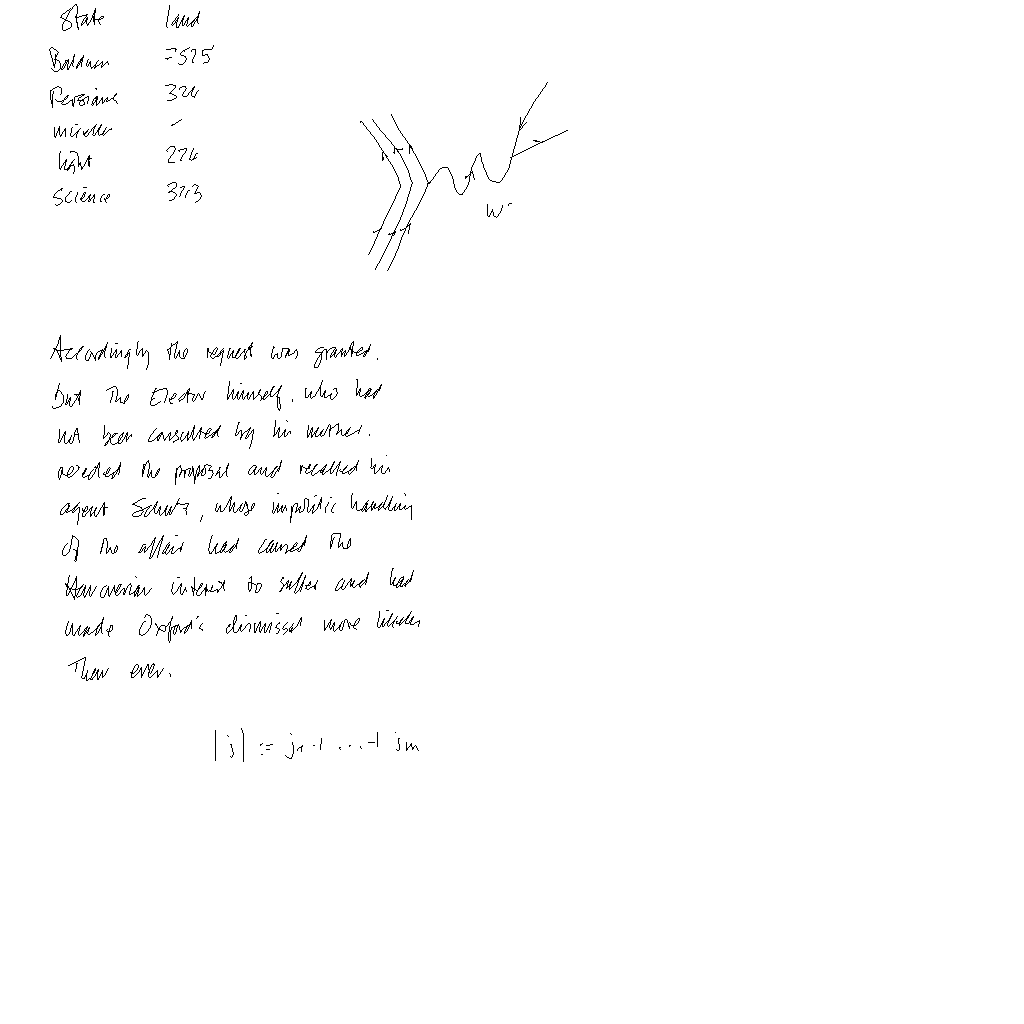 State land
Baldwin 7525
Persians 324
mirella -
light 274
Science 3713
W-
Accordingly the request was granted.
But the Elector himself, who had
not been consulted by his mother,
the proposal and recalled his
agent Schutz, whose impolitic handling
of the affair had caused the
Hanoverian interest to suffer and had
made Oxford's dismissal more likely
than ever.
|j| := j1 + ... + jm